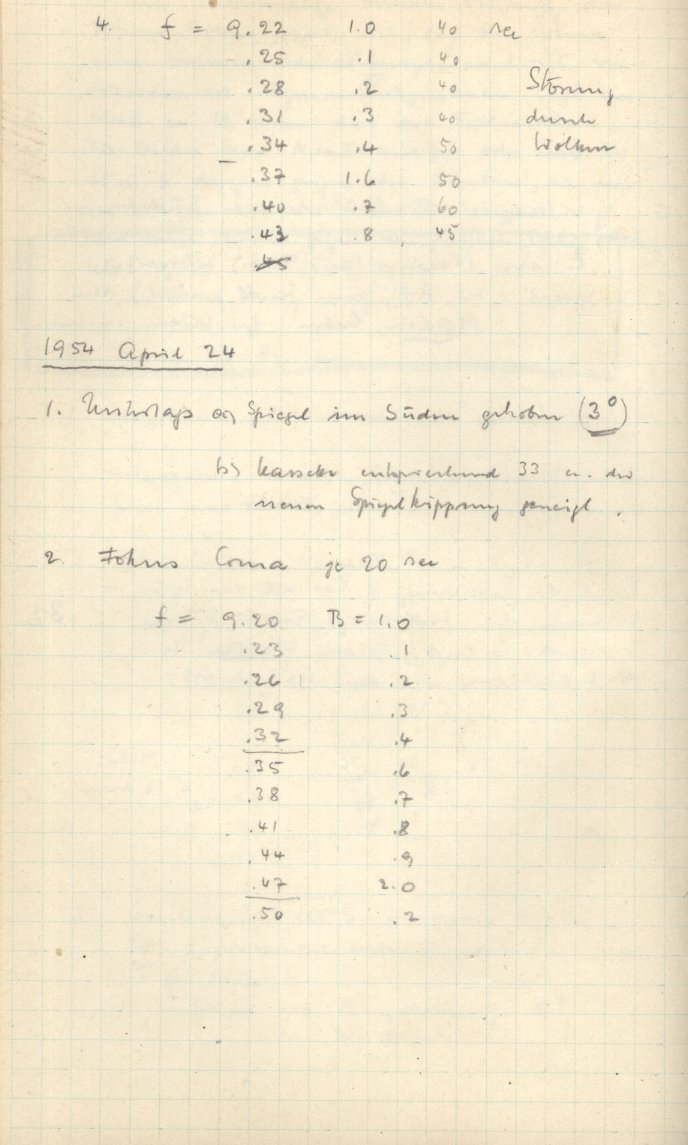 4. f = 9.22 1.0 40 sec
.25 .1 40
.28 .2 40 Störung
.31 .3 40 durch
.34 .4 50 Wolken
.37 1.6 50
.40 .7 60
.43 .8 45
.45
1954 April 24
1. Spiegel im Süden gehoben (3°)
Kassette entsprechend 33 der
neuen Spiegelkippung geneigt.
2. Fokus Coma je 20 sec
f = 9.20 B = 1.0
.23 .1
.26 .2
.29 .3
.32 .4
.35 .6
.38 .7
.41 .8
.44 .9
.47 2.0
.50 .2